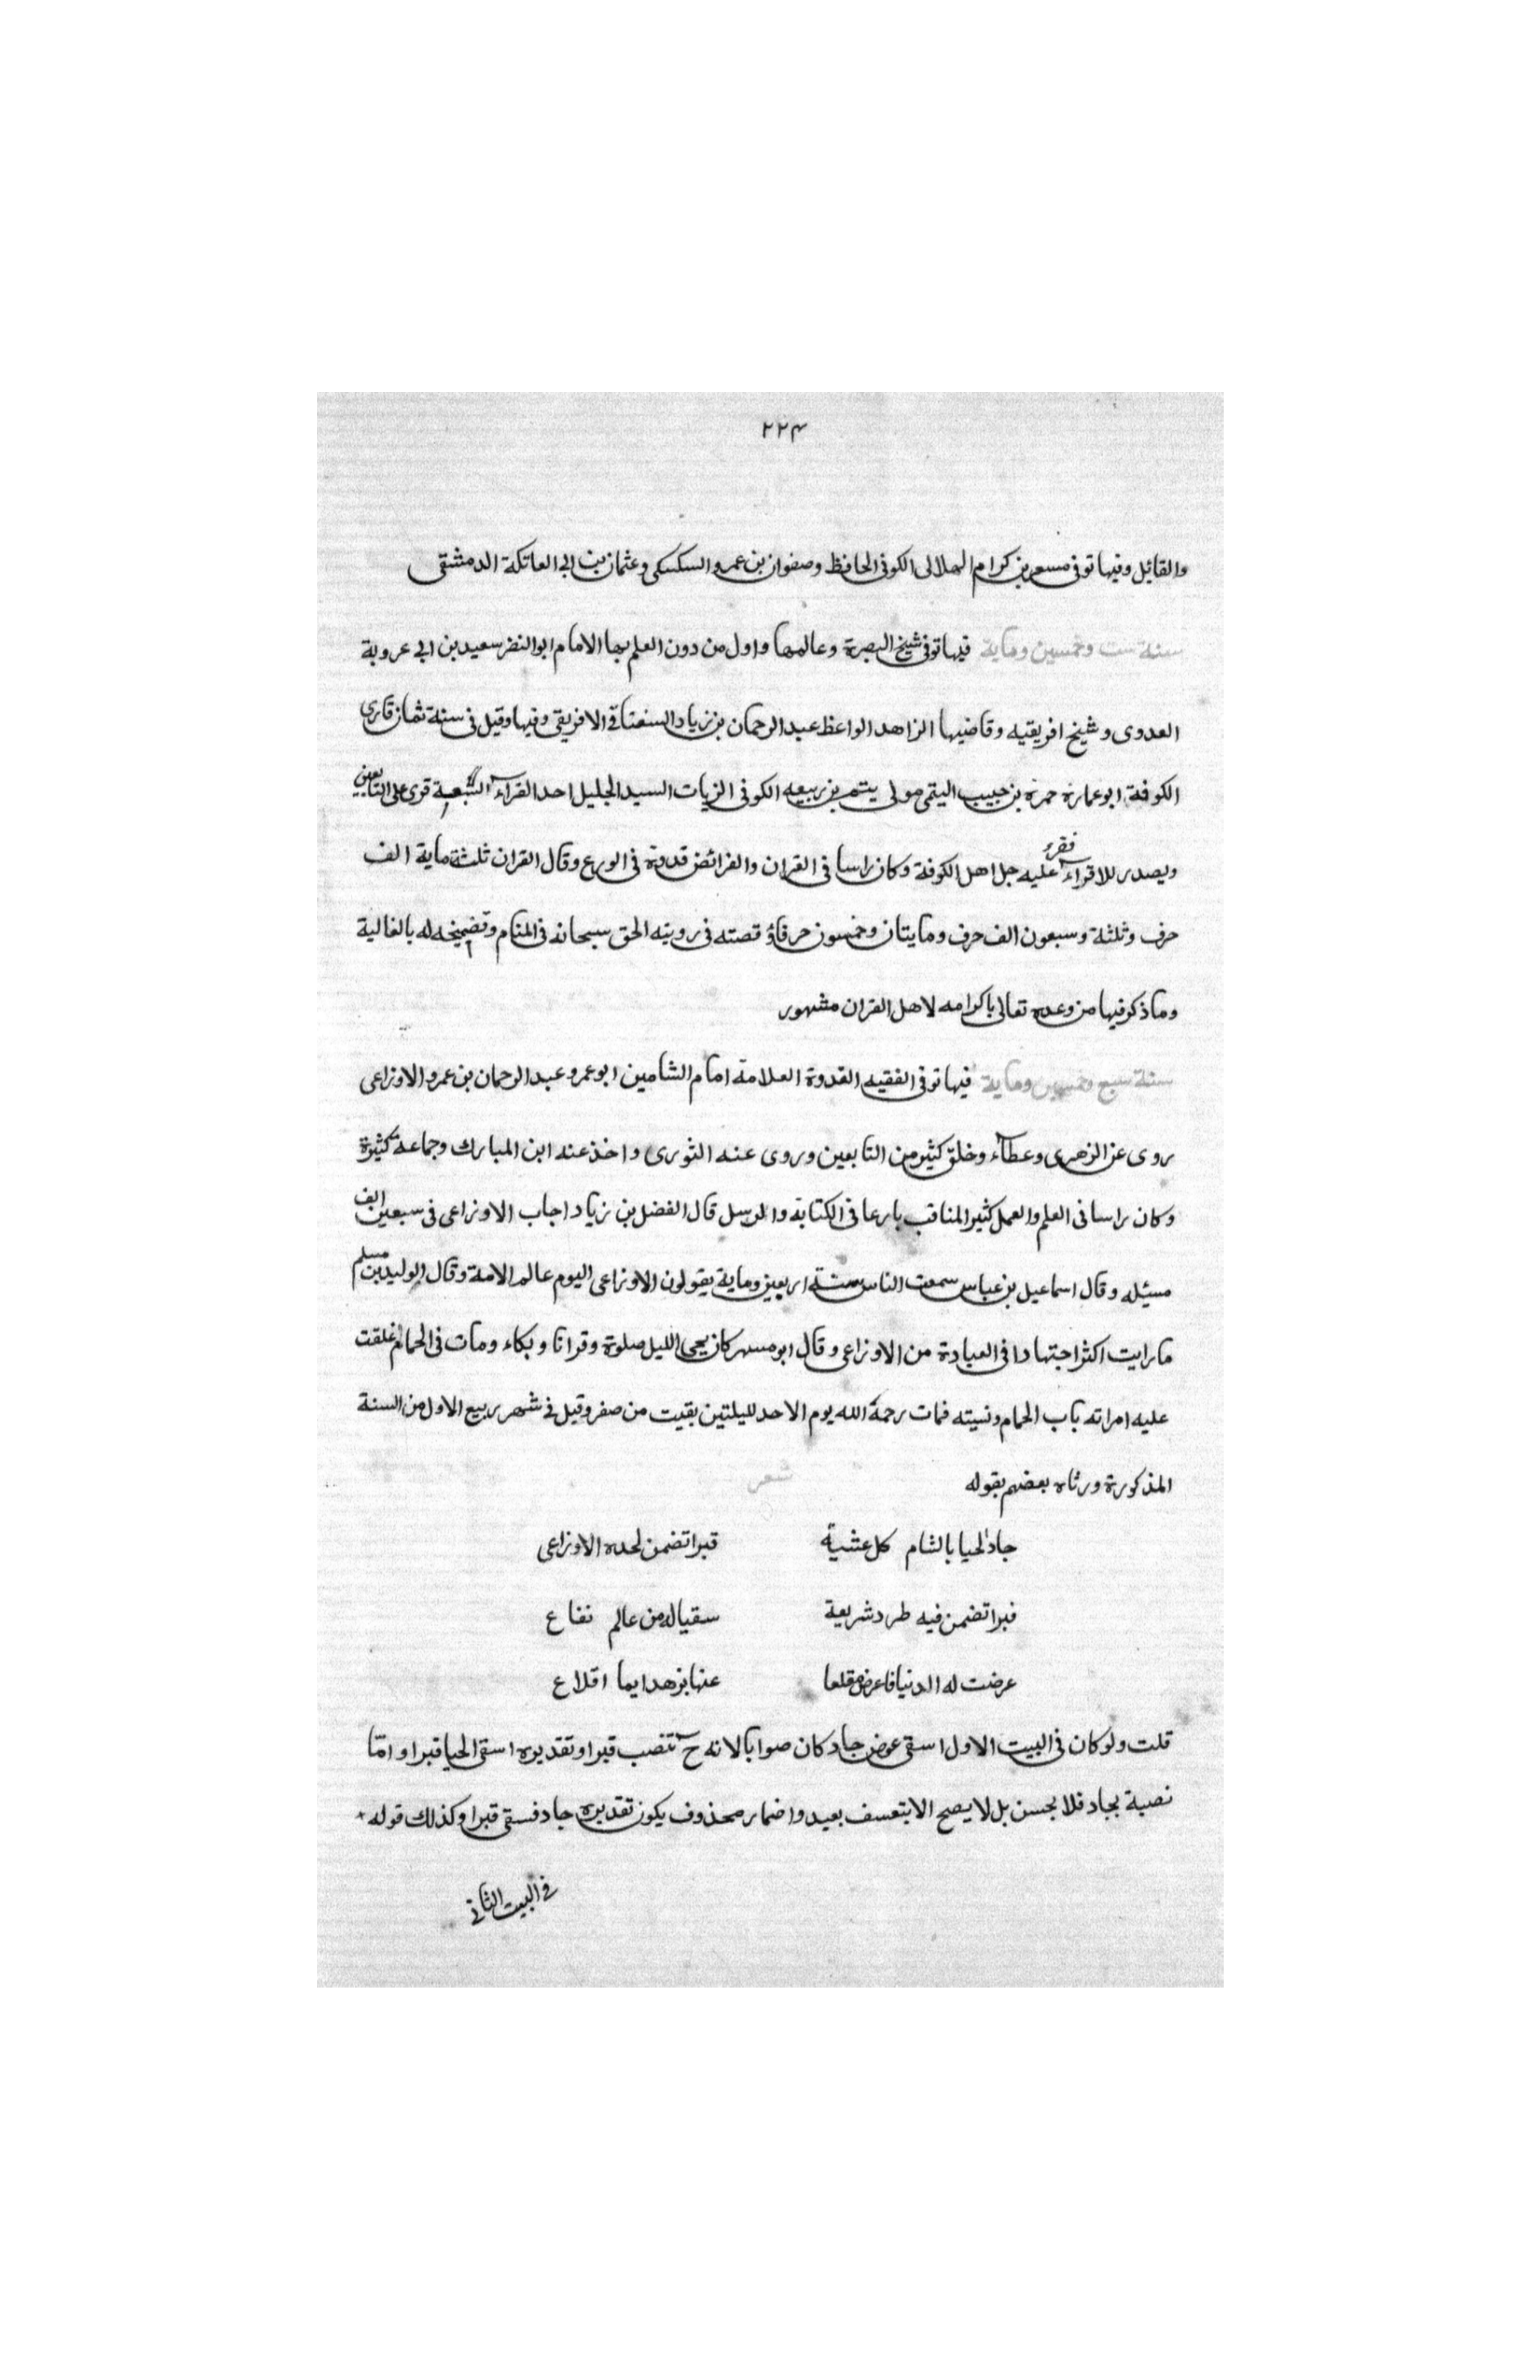 ٢٢٤
والقايل وفيها توفى مسعر بن كرام الهلالى الكوفى الحافظ وصفوان بن عمرو السكسكى وعثمان بن ابى العاتكة الدمشقى
سنة ست وخمسين وماية فيها توفى شيخ البصرة وعالمها واول من دون العلم بها الامام ابو النضر سعيد بن ابى عروبة
العدوى وشيخ افريقيه وقاضيها الزاهد الواعظ عبد الرحمان بن زياد الافريقى وفيها وقيل فى سنة ثمان قارى
الكوفة ابو عمارة حمزة بن حبيب التيمى مولى يتم بن ربيعه الكوفى الزيات السيد الجليل احد القرآء السبعة قرى على التابعين
ويصدر للاقرآء فقرء عليه جل اهل الكوفة وكان راسا فى القران والفرائض قدوة فى الورع وقال القران ثلثة ماية الف
حرف وثلثة وسبعون الف حرف ومايتان وخمسون حرفا وقصته فى رويته الحق سبحانه فى المنام وتضميخه له بالغالية
وما ذكر فيها من وعده تعالى باكرامه لاهل القران مشهور
سنة سبع وخمسين وماية فيها توفى الفقيه القدوة العلامة امام الشامين ابو عمرو عبد الرحمان بن عمرو الاوزاعى
روى عن الزهرى وعطآء وخلق كثير من التابعين وروى عنه الثورى واخذ عنه ابن المبارك وجماعة كثيرة
وكان راسا فى العلم والعمل كثير المناقب بارعا فى الكتابة والرسل قال الفضل بن زياد اجاب الاوزاعى فى سبعين الف
مسيله وقال اسماعيل بن عباس سمعت الناس سنة اربعين وماية يقولون الاوزاعى اليوم عالم الامة وقال الوليد بن مسلم
ما رايت اكثر اجتهادا فى العبادة من الاوزاعى وقال ابو مسهر كان يحيى الليل صلوة وقرانا وبكاء ومات فى الحمام غلقت
عليه امراته باب الحمام ونسيته فمات رحمة الله يوم الاحد لليلتين بقيت من صفر وقيل فى شهر ربيع الاول من السنة
المذكورة ورثاه بعضهم بقوله شعر
جاد الحيا بالشام كل عشية قبرا تضمن لحده الاوزاعى
قبرا تضمن فيه طرد شريعة سقيا له من عالم نفاع
عرضت له الدنيا فاعرض مقلعا عنها بزهد ايما اقلاع
قلت ولو كان فى البيت الاول اسقى عوض جاد كان صوابا لانه ح تنصب قبرا وتقديره اسقى الحيا قبرا وامّا
نصبة بجاد فلا يحسن بل لا يصح الا بتعسف بعيد واضمار محذوف يكون تقديره جاد فسقى قبرا وكذلك قوله
فى البيت الثانى